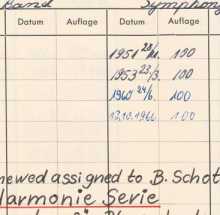 Band Symphon
Datum Auflage Datum Auflage
1951 28/11. 100
1953 23/3. 100
1960 24/6. 100
12.10.1966 100
newed assigned to B. Schot
Harmonie Serie